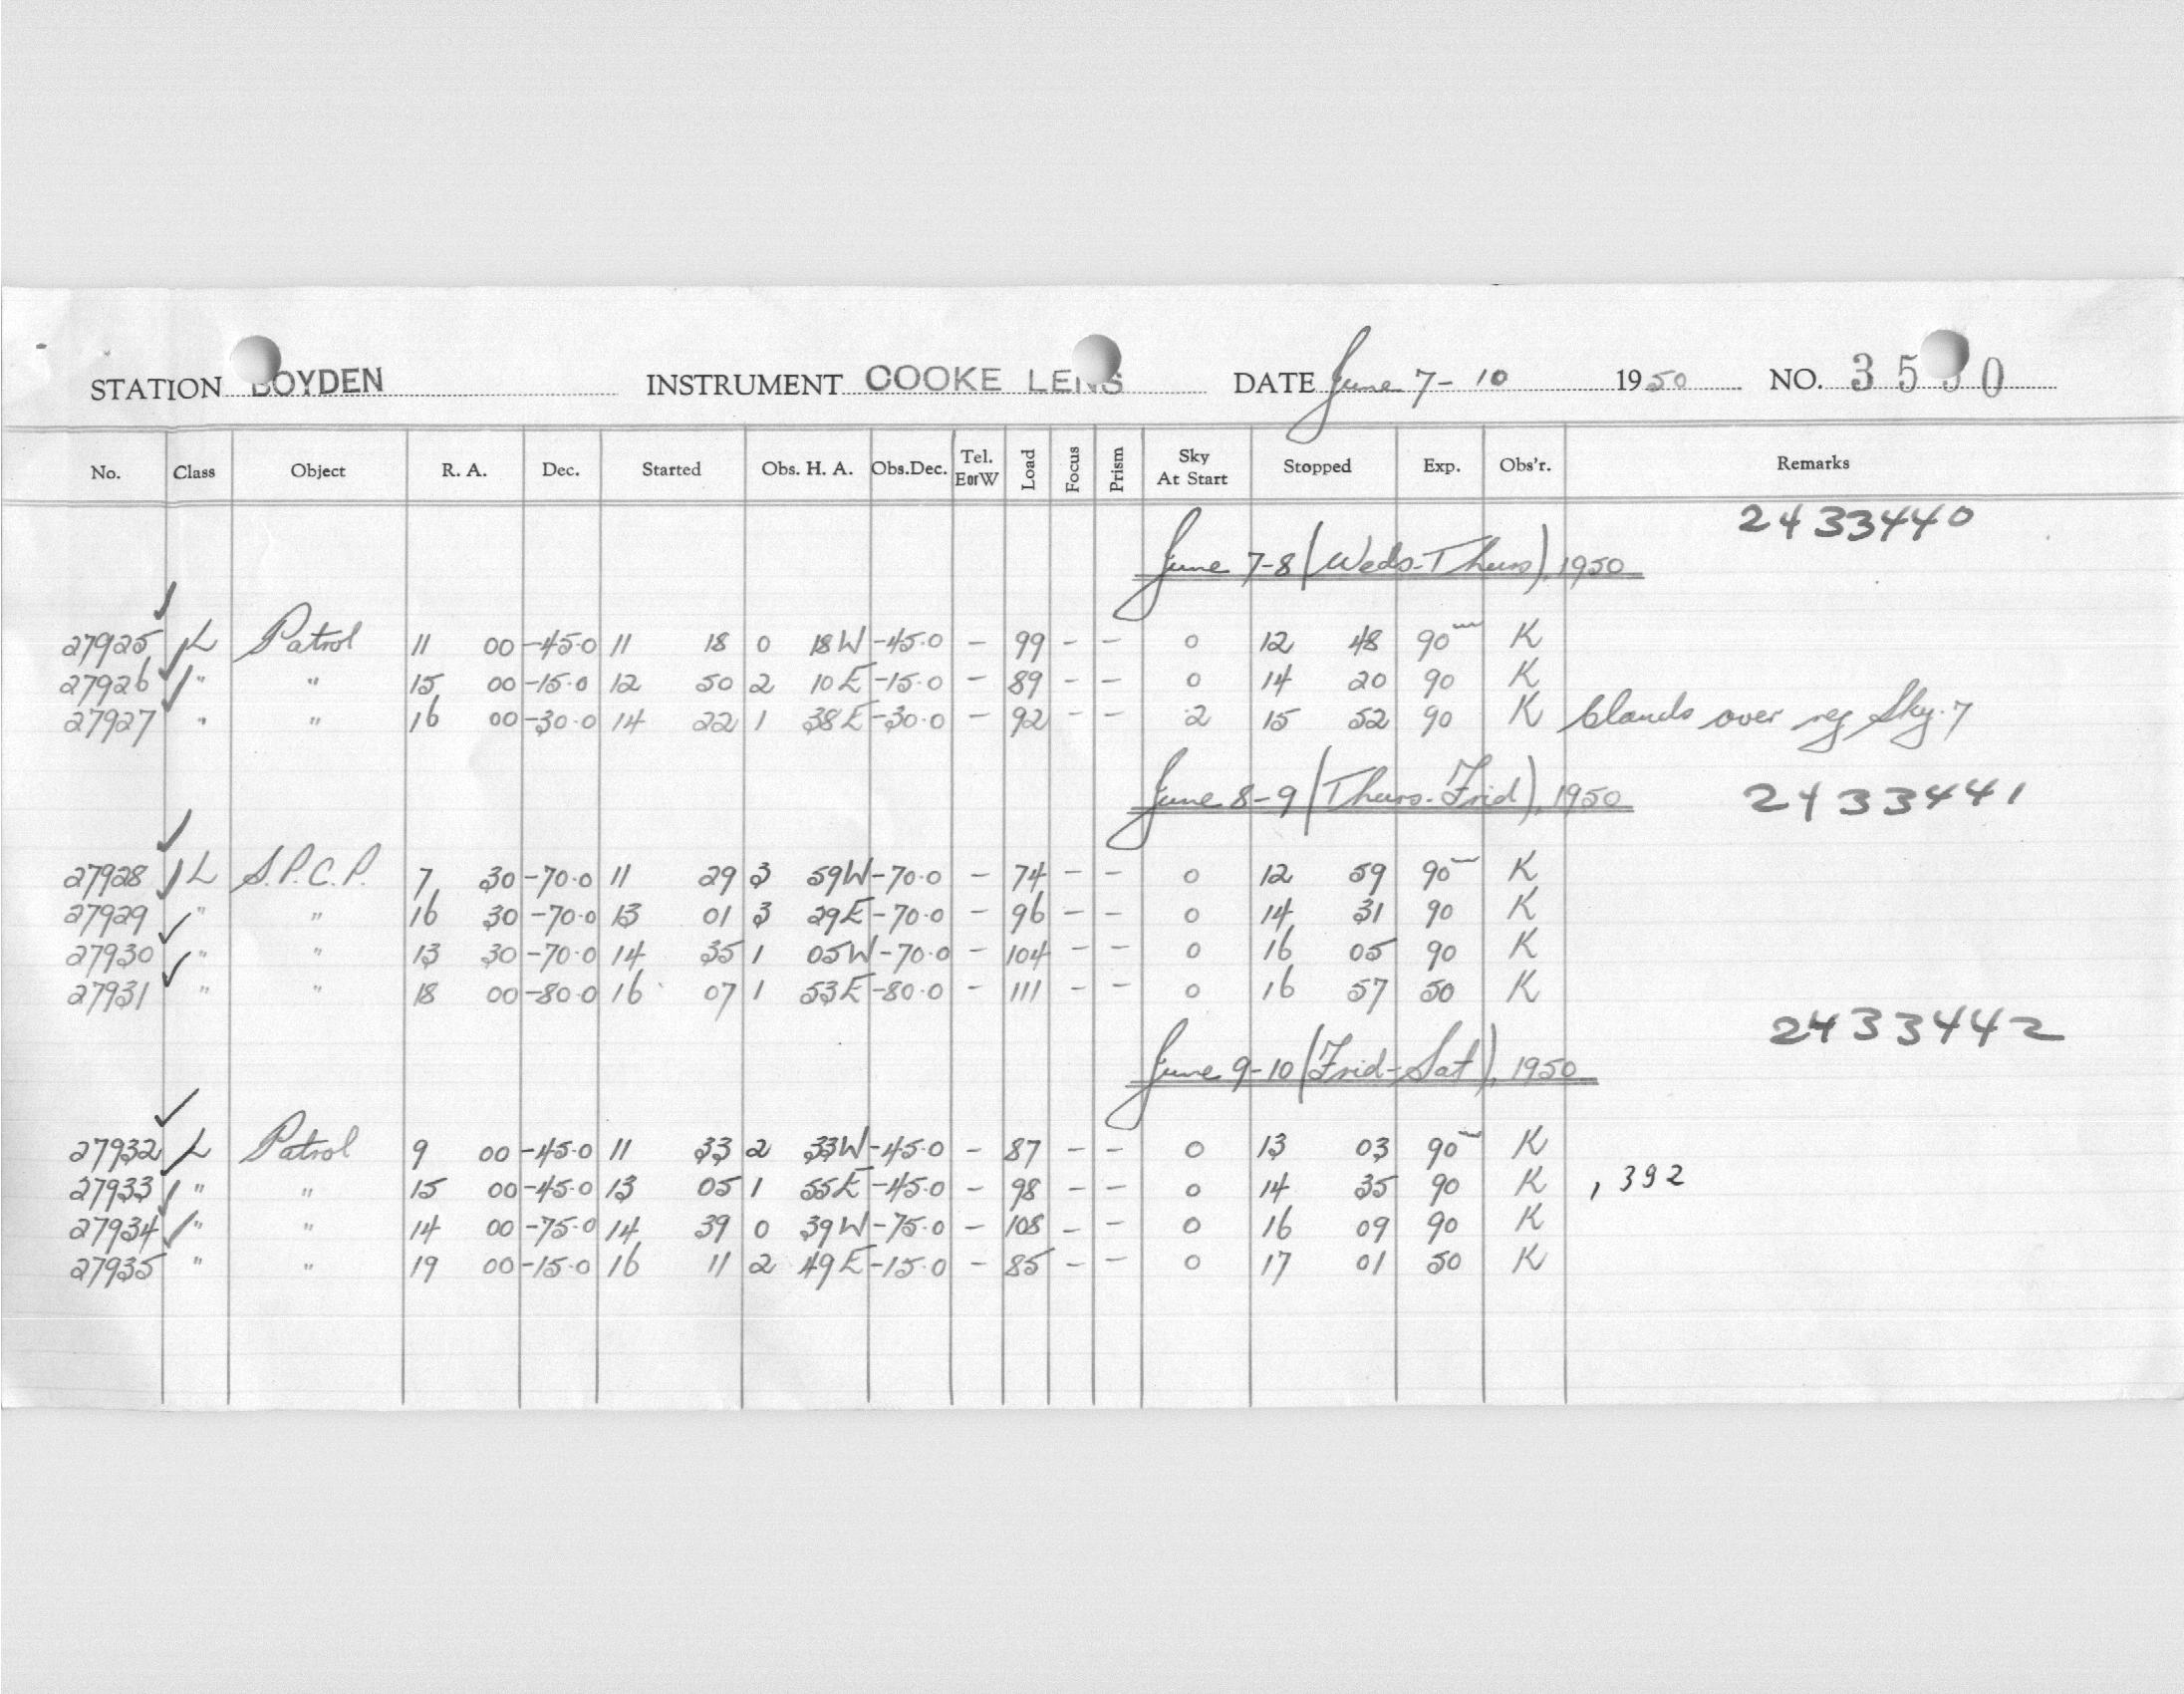 STATION BOYDEN INSTRUMENT COOKE LENS DATE June 7-10 1950 NO. 35 0
No. Class Object R. A. Dec. Started Obs. H. A. Obs.Dec. Tel. EorW Load Focus Prism Sky At Start Stopped Exp. Obs'r. Remarks
2433440
June 7-8 (Weds-Thurs), 1950
27925 L Patrol 11 00 -45.0 11 18 0 18W -45.0 - 99 - - 0 12 48 90m K
27926 " " 15 00 -15.0 12 50 2 10E -15.0 - 89 - - 0 14 20 90 K
27927 " " 16 00 -30.0 14 22 1 38E -30.0 - 92 - - 2 15 52 90 K Clouds over reg Sky.7
June 8-9 (Thurs-Frid), 1950 2433441
27928 L S.P.C.P. 7 30 -70.0 11 29 3 59W -70.0 - 74 - - 0 12 59 90m K
27929 " " 16 30 -70.0 13 01 3 29E -70.0 - 96 - - 0 14 31 90 K
27930 " " 13 30 -70.0 14 35 1 05W -70.0 - 104 - - 0 16 05 90 K
27931 " " 18 00 -80.0 16 07 1 53E -80.0 - 111 - - 0 16 57 50 K
2433442
June 9-10 (Frid-Sat), 1950
27932 L Patrol 9 00 -45.0 11 33 2 33W -45.0 - 87 - - 0 13 03 90m K
27933 " " 15 00 -45.0 13 05 1 55E -45.0 - 98 - - 0 14 35 90 K , 392
27934 " " 14 00 -75.0 14 39 0 39W -75.0 - 108 - - 0 16 09 90 K
27935 " " 19 00 -15.0 16 11 2 49E -15.0 - 85 - - 0 17 01 50 K